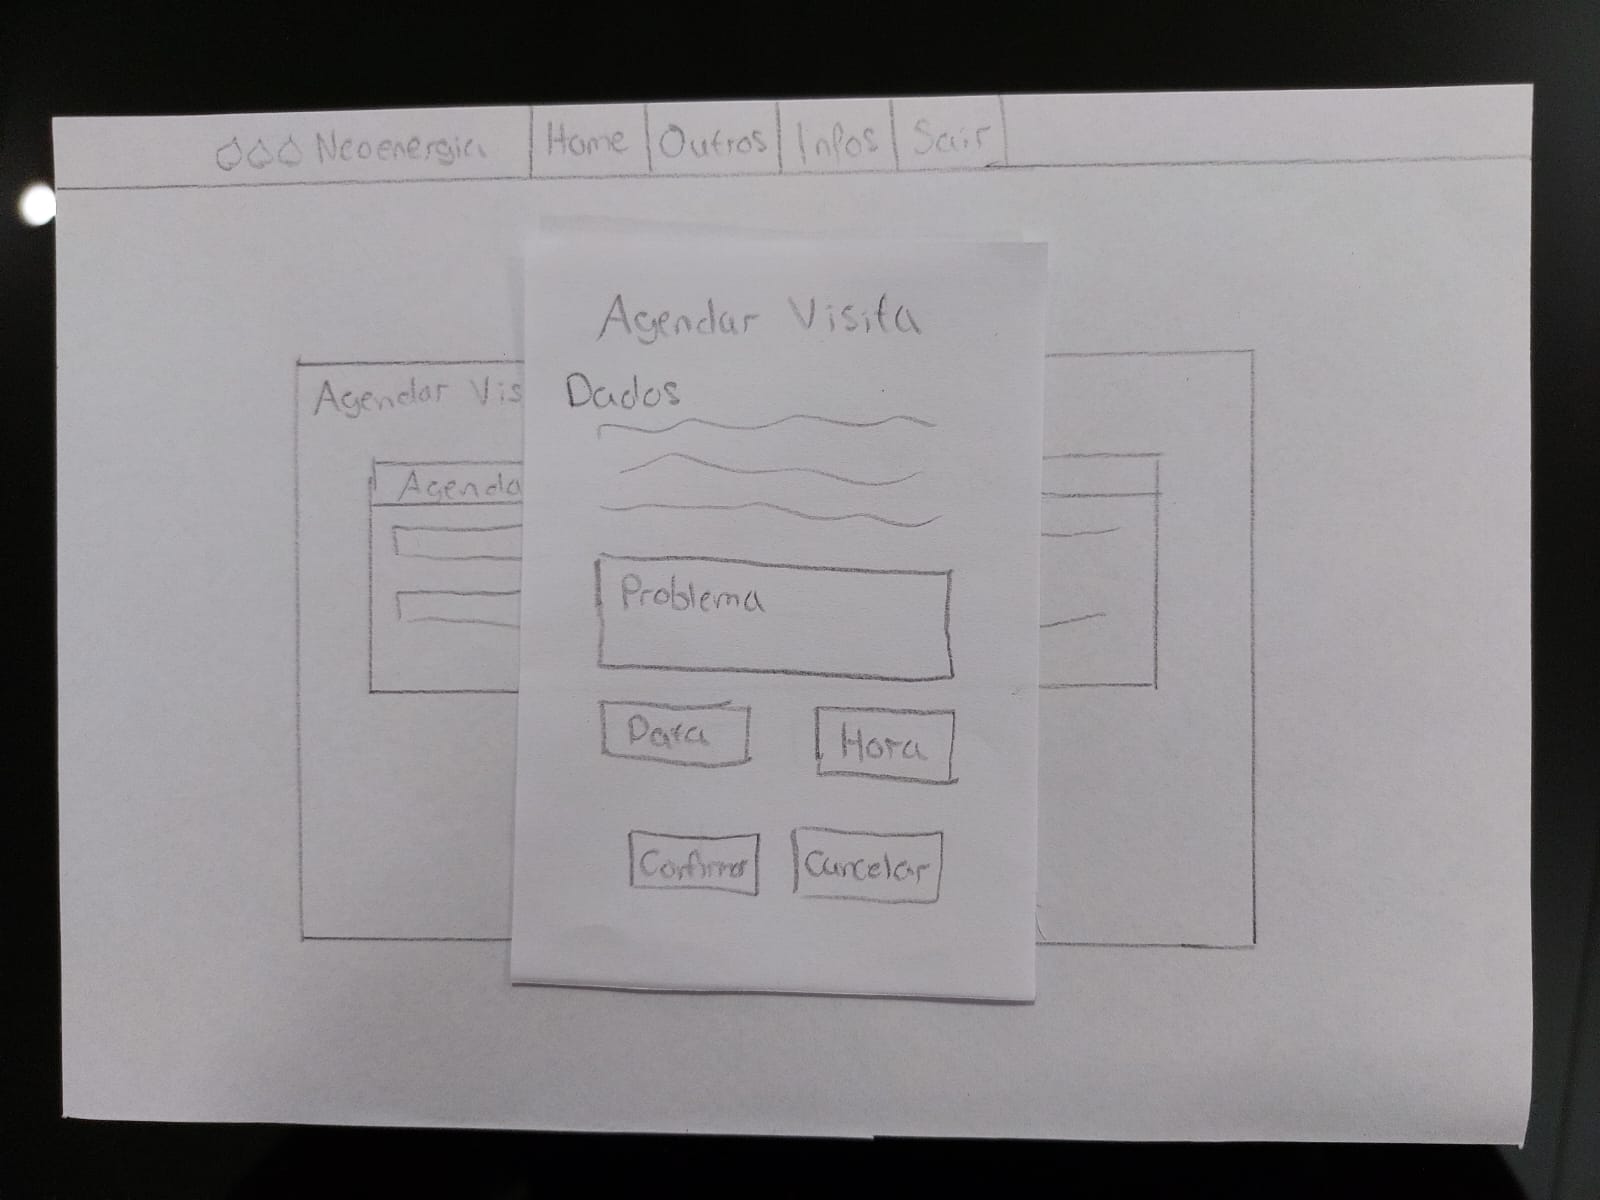 Neoenergia Home Outros Infos Sair
Agendar Visita
Agendar Vis
Dados
Agenda
Problema
Data Hora
Confirmar Cancelar